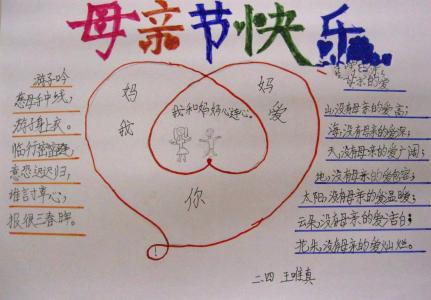 母亲节快乐
游子吟
慈母手中线，
游子身上衣。
临行密密缝，
意恐迟迟归，
谁言寸草心，
报得三春晖。
妈 妈
我 爱
你
我和妈妈心连心。
母亲的爱
山，没有母亲的爱高；
海，没有母亲的爱深；
天，没有母亲的爱广阔；
地，没有母亲的爱包容；
太阳，没有母亲的爱温暖；
云朵，没有母亲的爱洁白；
花朵，没有母亲的爱灿烂。
二四 王唯真